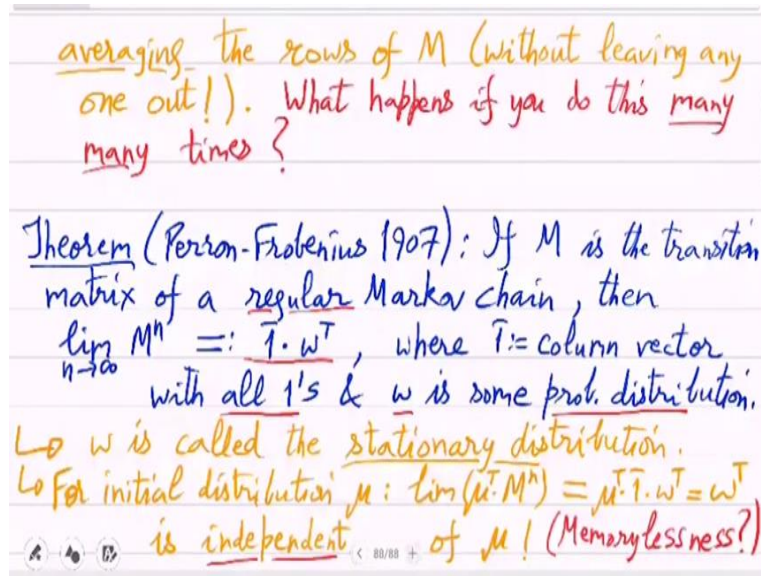 averaging the rows of M (without leaving any
one out!). What happens if you do this many
many times?
Theorem (Perron-Frobenius 1907): If M is the transition
matrix of a regular Markov chain, then
lim n→∞ Mⁿ =: 1̄·wᵀ, where 1̄:= column vector
with all 1's & w is some prob. distribution.
↳ w is called the stationary distribution.
↳ For initial distribution μ: lim(μᵀ·Mⁿ) = μᵀ·1̄·wᵀ = wᵀ
is independent of μ! (Memorylessness?)
< 80/88 +